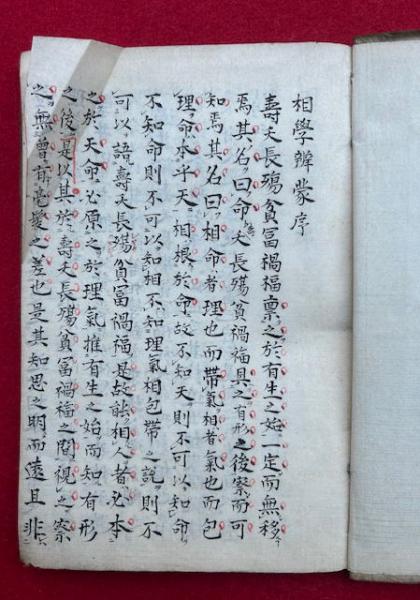 相學辨蒙序
壽夭長殤貧冨禍福禀之於有生之始一定而無移
焉其名曰命夭長殤貧禍福具之有形之後察而可
知焉其名曰相命者理也而帶氣相者氣也而包
理命本乎天相根於命故不知天則不可以知命
不知命則不可以知相不知理氣相包帶之説則不
可以語壽夭長殤貧冨禍福是故能相人者必本
之於天命必原之於理氣推有生之始而知有形
之後是以其於壽夭長殤貧冨禍福之間視之察
之無曽毫髮之差也是其知思之明而遠且非